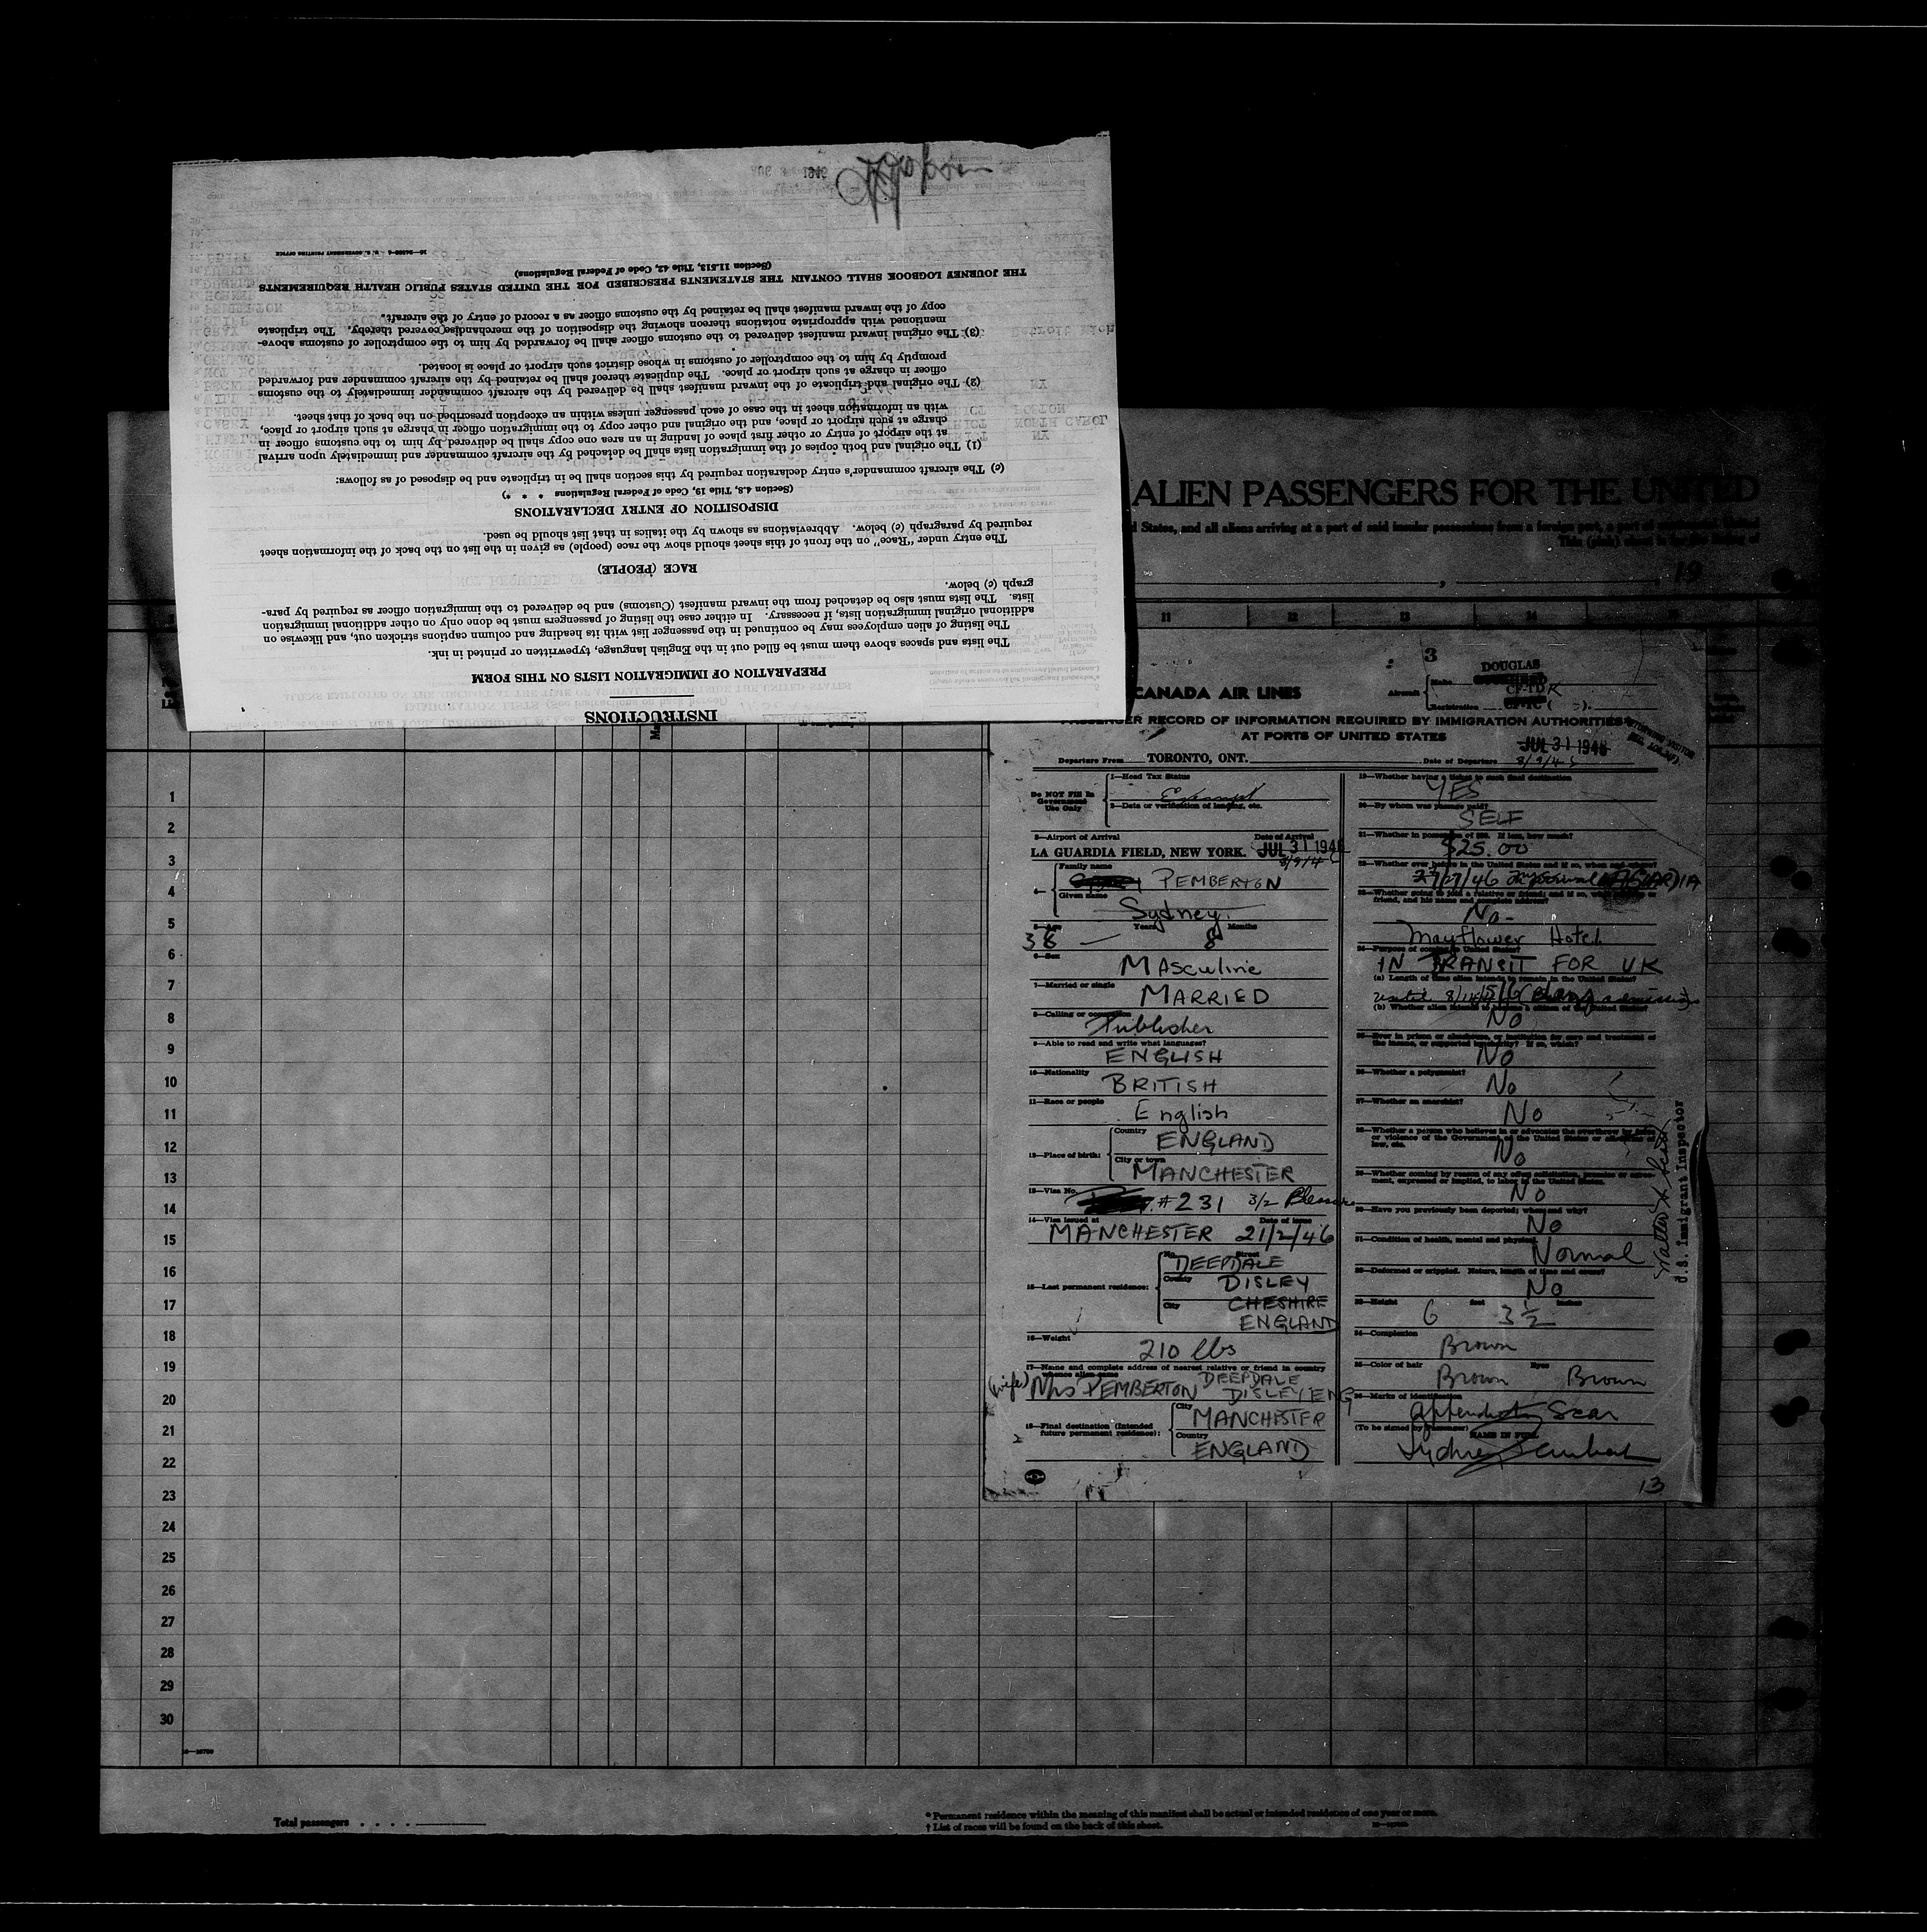 INSTRUCTIONS
PREPARATION OF IMMIGRATION LISTS ON THIS FORM
The lists and spaces above them must be filled out in the English language, typewritten or printed in ink.
The listing of alien employees may be continued in the passenger list with its heading and column captions stricken out, and likewise on
additional original immigration lists, if necessary. In either case the listing of passengers must be done only on other additional immigration
lists. The lists must also be detached from the inward manifest (Customs) and be delivered to the immigration officer as required by para-
graph (c) below.
RACE (PEOPLE)
The entry under "Race" on the front of this sheet should show the race (people) as given in the list on the back of the information sheet
required by paragraph (c) below. Abbreviations as shown by the italics in that list should be used.
DISPOSITION OF ENTRY DECLARATIONS
(Section 4.8, Title 19, Code of Federal Regulations * * *)
(c) The aircraft commander's entry declaration required by this section shall be in triplicate and be disposed of as follows:
(1) The original and both copies of the immigration lists shall be detached by the aircraft commander and immediately upon arrival
at the airport of entry or other first place of landing in an area one copy shall be delivered by him to the customs officer in
charge at such airport or place, and the original and other copy to the immigration officer in charge at such airport or place,
with an information sheet in the case of each passenger unless within an exception prescribed on the back of that sheet.
(2) The original and triplicate of the inward manifest shall be delivered by the aircraft commander immediately to the customs
officer in charge at such airport or place. The duplicate thereof shall be retained by the aircraft commander and forwarded
promptly by him to the comptroller of customs in whose district such airport or place is located.
(3) The original inward manifest delivered to the customs officer shall be forwarded by him to the comptroller of customs above-
mentioned with appropriate notations thereon showing the disposition of the merchandise covered thereby. The triplicate
copy of the inward manifest shall be retained by the customs officer as a record of entry of the aircraft.
THE JOURNEY LOGBOOK SHALL CONTAIN THE STATEMENTS PRESCRIBED FOR THE UNITED STATES PUBLIC HEALTH REQUIREMENTS
(Section 11.513, Title 42, Code of Federal Regulations)
U. S. GOVERNMENT PRINTING OFFICE
ALIEN PASSENGERS FOR THE UNITED
States, and all aliens arriving at a port of said insular possessions from a foreign port, a
This (pink) sheet is for the listing of
, 19
11 12 13 14
3
DOUGLAS
Aircraft Make
CF-TDK
Registration
CANADA AIR LINES
PASSENGER RECORD OF INFORMATION REQUIRED BY IMMIGRATION AUTHORITIES
AT PORTS OF UNITED STATES
JUL 31 1946
Departure From TORONTO, ONT. Date of Departure
Do NOT Fill In
Government
Use Only
1—Head Tax Status
Exempt
2—Data or verification of landing, etc.
3—Airport of Arrival Date of Arrival
LA GUARDIA FIELD, NEW YORK. JUL 31 1946
4— Family name
PEMBERTON
Given name
Sydney
5—Age Years Months
38 — 8
6—Sex
MAsculine
7—Married or single
MARRIED
8—Calling or occupation
Publisher
9—Able to read and write what languages?
ENGLISH
10—Nationality
BRITISH
11—Race or people
English
12—Place of birth:
Country
ENGLAND
City or town
MANCHESTER
13—Visa No.
#231 3/2
14—Visa issued at Date of issue
MANCHESTER 21/2/46
15—Last permanent residence:
No. Street
DEEPDALE
County DISLEY
City CHESHIRE
ENGLAND
16—Weight
210 lbs
17—Name and complete address of nearest relative or friend in country
whence alien came
(wife) Mrs PEMBERTON DEEPDALE
DISLEY ENG
18—Final destination (Intended
future permanent residence):
City
MANCHESTER
Country
ENGLAND
19—Whether having a ticket to such final destination
YES
20—By whom was passage paid?
SELF
21—Whether in possession of $50. If less, how much?
$25.00
22—Whether ever before in the United States and if so, when and where?
23—Whether going to join a relative or friend; and if so, what relative or
friend, and his name and complete address?
No-
Mayflower Hotel
24—Purpose of coming to United States?
IN TRANSIT FOR UK
(a) Length of time alien intends to remain in the United States?
(b) Whether alien intends to become a citizen of the United States?
No
25—Ever in prison or almshouse, or institution for care and treatment of
the insane, or supported by charity? If so, which?
No
26—Whether a polygamist?
No
27—Whether an anarchist?
No
28—Whether a person who believes in or advocates the overthrow by force
or violence of the Government of the United States or all forms of
law, etc.
No
29—Whether coming by reason of any offer, solicitation, promise or agree-
ment, expressed or implied, to labor in the United States.
No
30—Have you previously been deported; when and why?
No
31—Condition of health, mental and physical
Normal
32—Deformed or crippled. Nature, length of time and cause?
No
33—Height feet inches
6 3½
34—Complexion
Brown
35—Color of hair Eyes
Brown Brown
36—Marks of identification
Scar
(To be signed by passenger) NAME IN FULL
13
U.S. Immigrant Inspector
1
2
3
4
5
6
7
8
9
10
11
12
13
14
15
16
17
18
19
20
21
22
23
24
25
26
27
28
29
30
Total passengers . . . .
* Permanent residence within the meaning of this manifest shall be actual or intended residence of one year or more.
† List of races will be found on the back of this sheet.